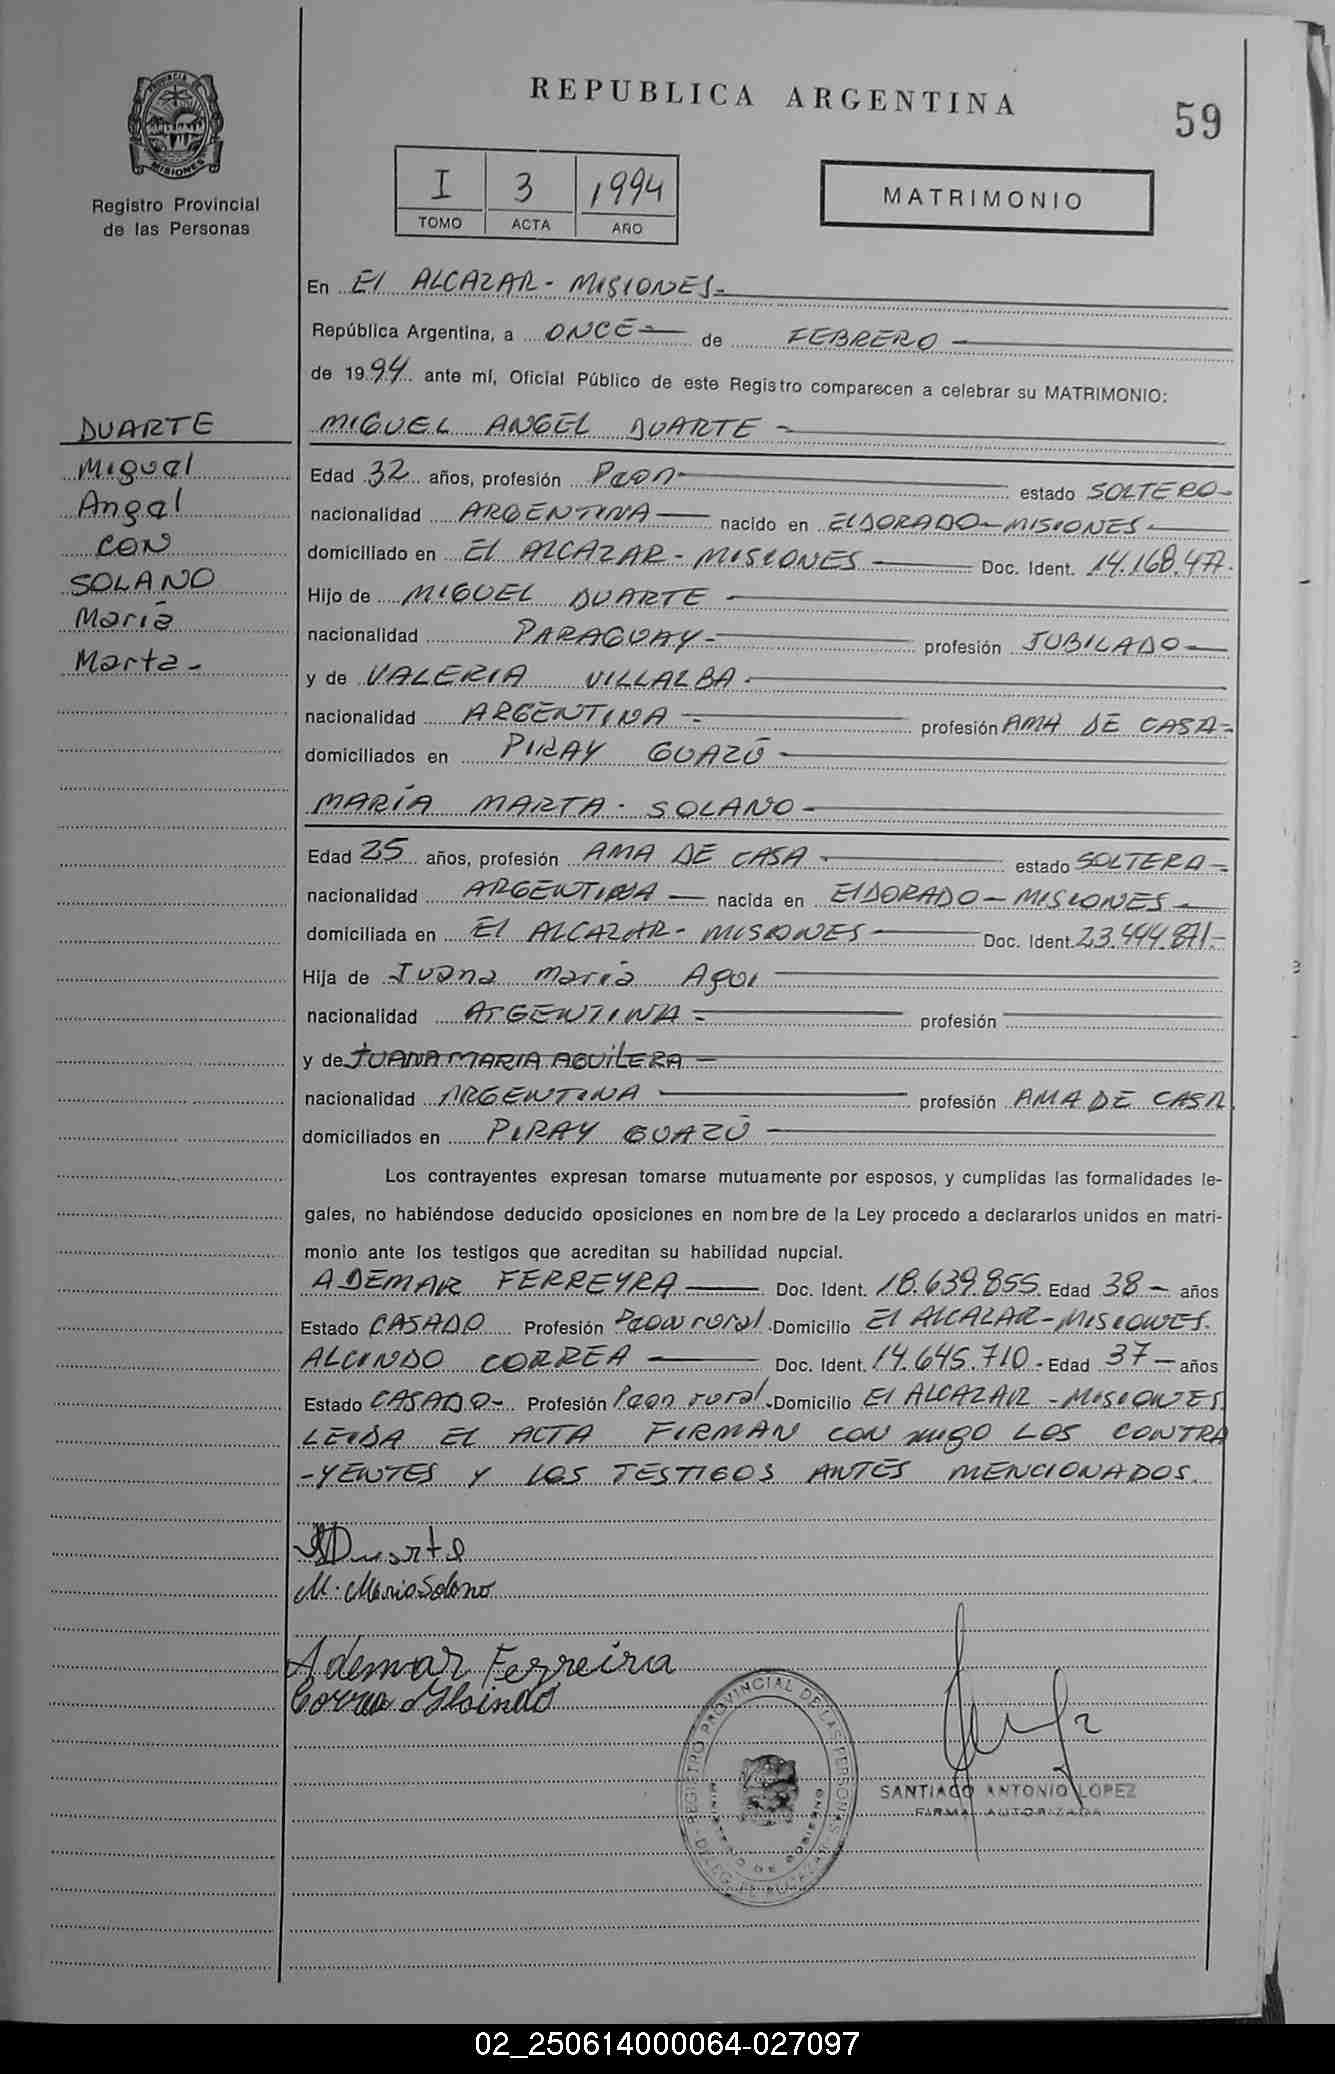 REPUBLICA ARGENTINA
59
PROVINCIA DE
MISIONES
Registro Provincial
de las Personas
I 3 1994
TOMO ACTA AÑO
MATRIMONIO
En El ALCAZAR - MISIONES -
República Argentina, a ONCE - de FEBRERO -
de 1994 ante mí, Oficial Público de este Registro comparecen a celebrar su MATRIMONIO:
DUARTE
Miguel
Angel
CON
SOLANO
María
Marta -
MIGUEL ANGEL DUARTE -
Edad 32 años, profesión Peon estado SOLTERO -
nacionalidad ARGENTINA - nacido en ELDORADO - MISIONES -
domiciliado en El ALCAZAR - MISIONES - Doc. Ident. 14.168.477.
Hijo de MIGUEL DUARTE -
nacionalidad PARAGUAY - profesión JUBILADO -
y de VALERIA VILLALBA -
nacionalidad ARGENTINA - profesión AMA DE CASA -
domiciliados en PIRAY GUAZÚ -
MARÍA MARTA - SOLANO -
Edad 25 años, profesión AMA DE CASA - estado SOLTERA -
nacionalidad ARGENTINA - nacida en ElDORADO - MISIONES -
domiciliada en El ALCAZAR - MISIONES - Doc. Ident. 23.494.871.-
Hija de Juana María
nacionalidad ARGENTINA - profesión
y de JUANA MARIA AGUILERA -
nacionalidad ARGENTINA - profesión AMA DE CASA
domiciliados en PIRAY GUAZÚ -
Los contrayentes expresan tomarse mutuamente por esposos, y cumplidas las formalidades le-
gales, no habiéndose deducido oposiciones en nombre de la Ley procedo a declararlos unidos en matri-
monio ante los testigos que acreditan su habilidad nupcial.
ADEMAR FERREYRA - Doc. Ident. 18.639.855. Edad 38 - años
Estado CASADO Profesión Peon rural. Domicilio El ALCAZAR - MISIONES.
ALCINDO CORREA - Doc. Ident. 14.645.710 - Edad 37 - años
Estado CASADO - Profesión Peon rural. Domicilio El ALCAZAR - MISIONES
LEIDA EL ACTA FIRMAN CON MIGO LOS CONTRA
-YENTES Y LOS TESTIGOS ANTES MENCIONADOS.
Duarte
M. Maria Solano
Ademar Ferreira
Correa Alsindo
REGISTRO PROVINCIAL DE LAS PERSONAS
MINISTERIO DE GOBIERNO
DELEG. DE ALCAZAR
SANTIAGO ANTONIO LOPEZ
FIRMA AUTORIZADA
02_250614000064-027097